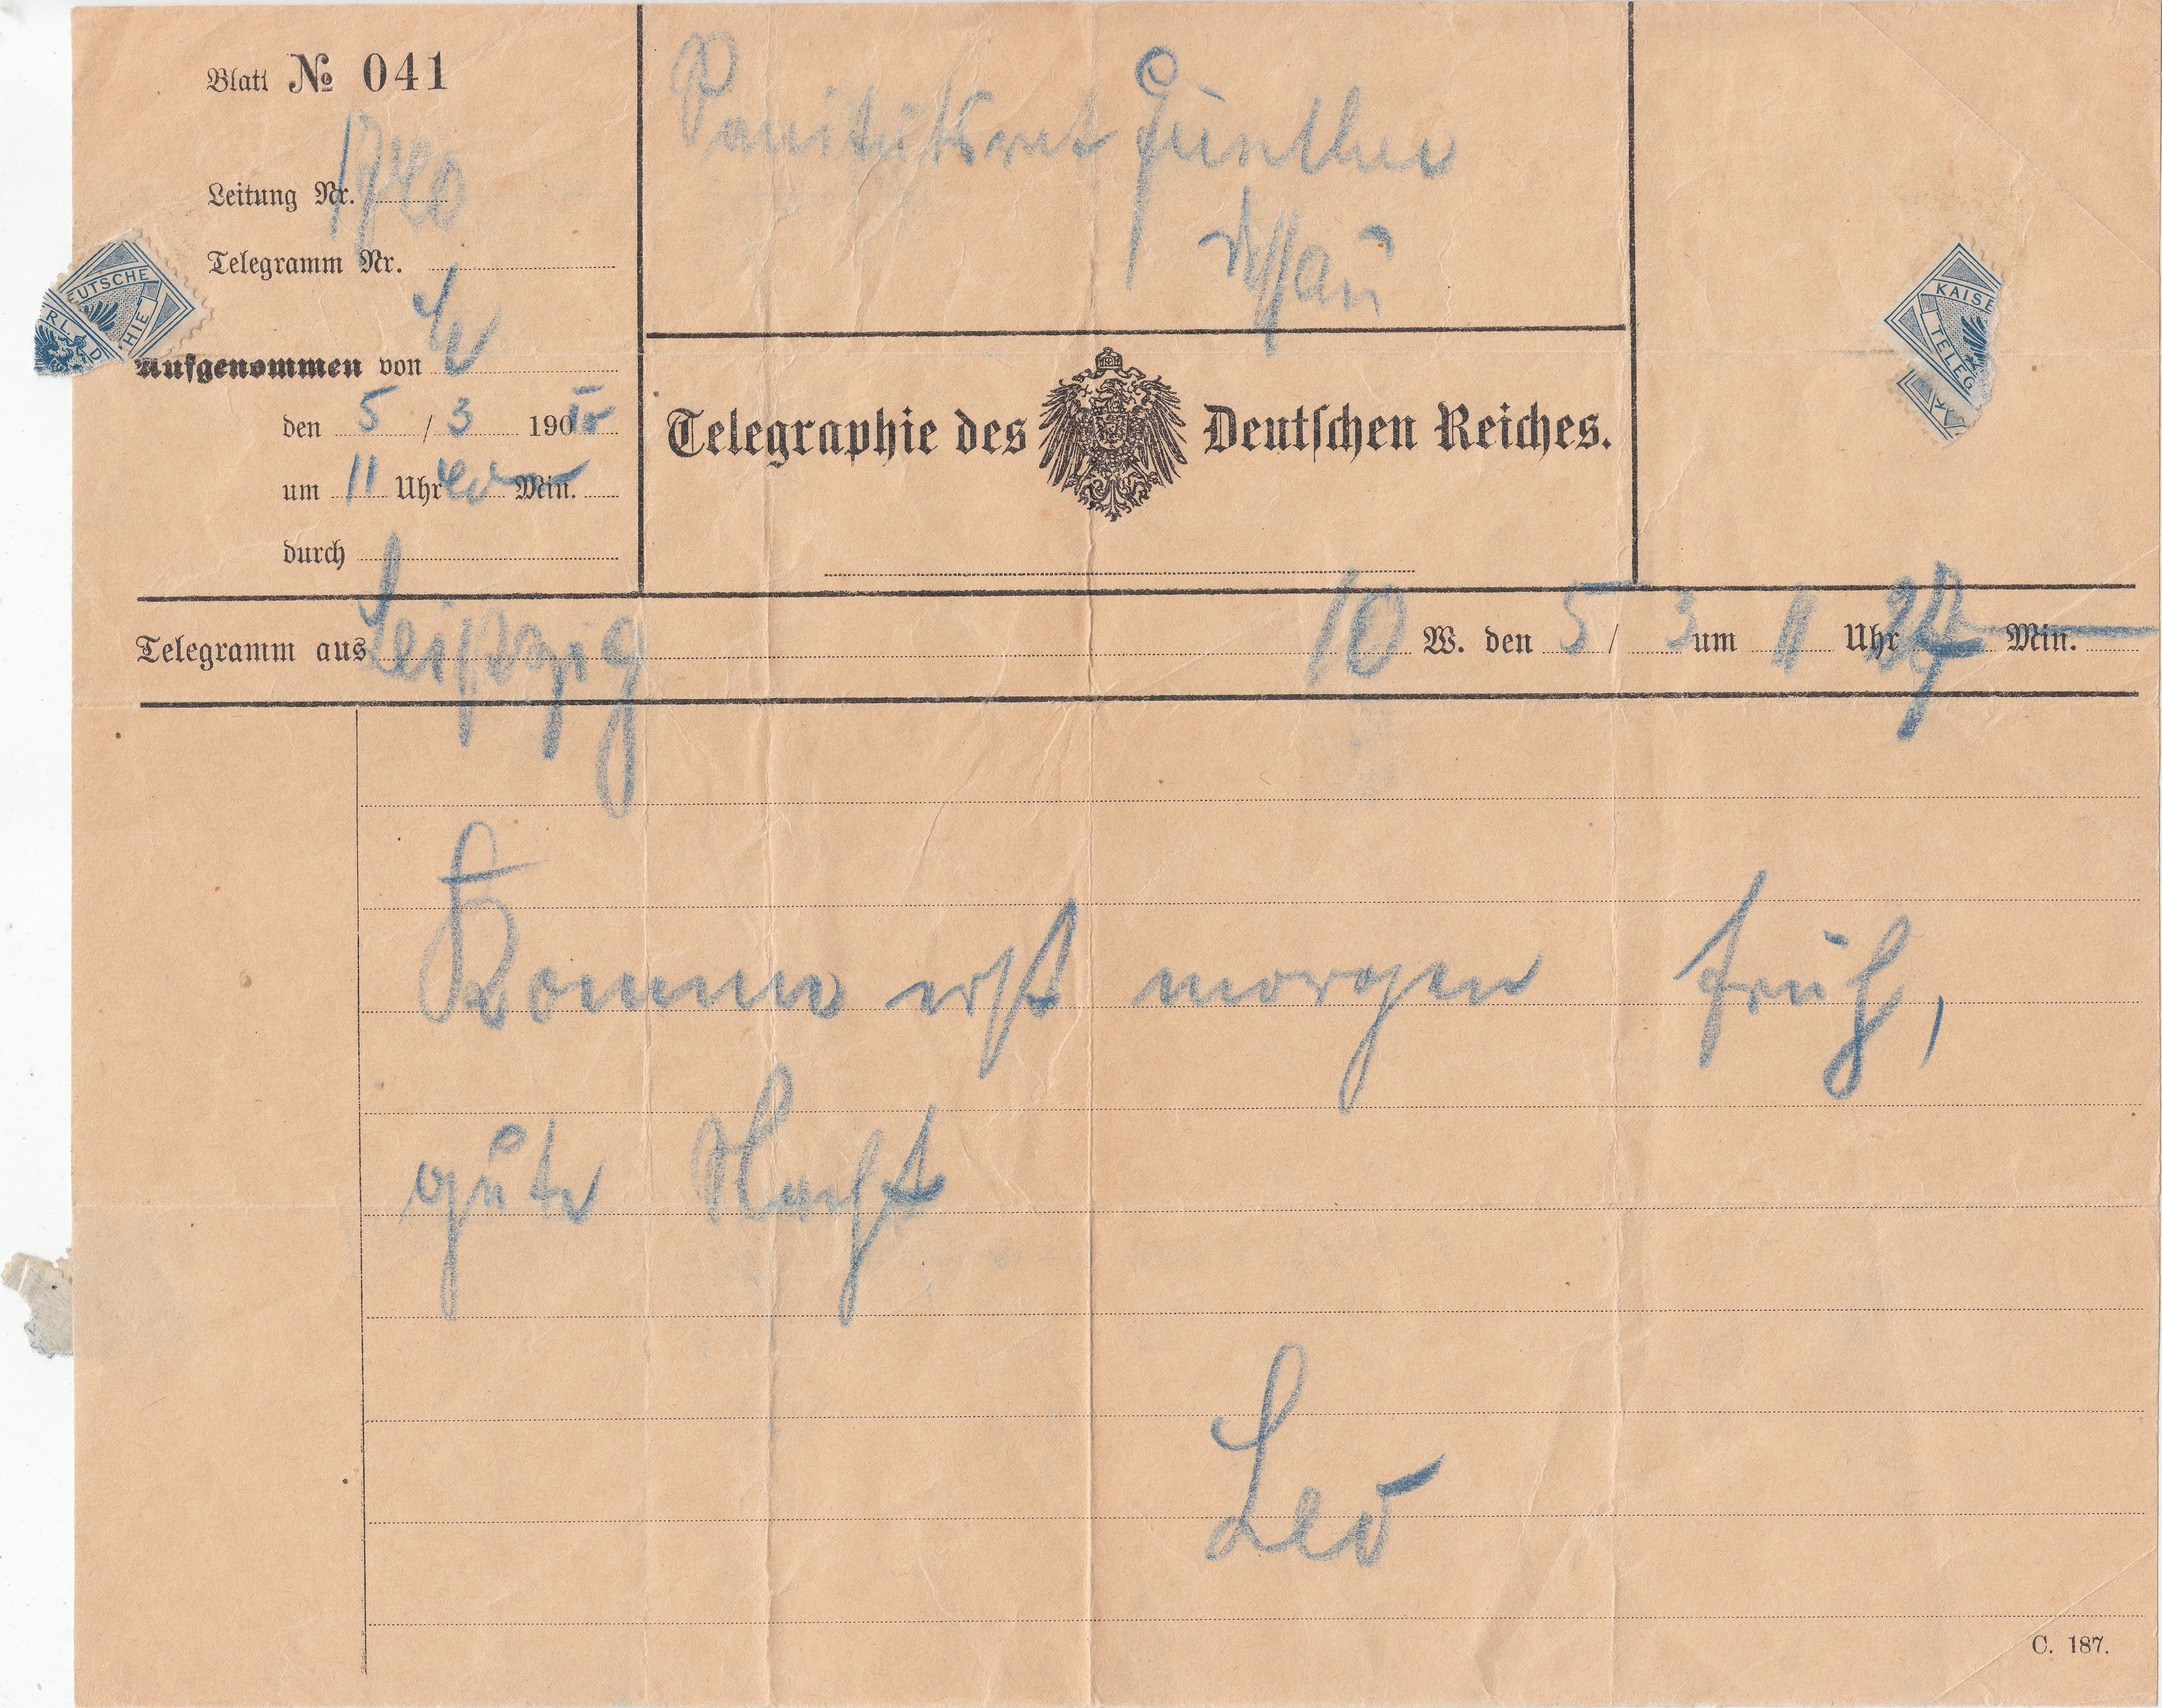 Blatt № 041
1740
Leitung Nr.
Telegramm Nr.
Aufgenommen von
den 5 / 3 190
um 11 Uhr 40 Min.
durch
Sanitätsrat Günther
Telegraphie des Deutschen Reiches.
EUTSCHE
HIE
RL. D
KAISE
TELEG
Telegramm aus Leipzig 10 W. den 5 / 3 um 11 Uhr 27 Min.
Komme erst morgen früh,
gute Nacht
Leo
C. 187.